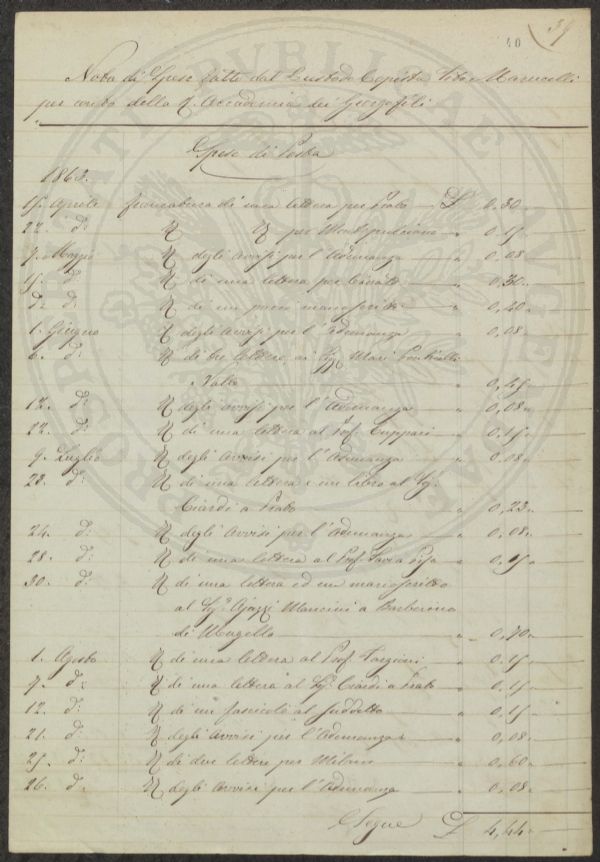 39
40
Nota di Spese fatte dal Custode Copista Tito Marucelli
per conto della R. Accademia dei Georgofili
Spese di Posta
1863.
15. Aprile francatura di una lettera per Prato £ 0,30
22. d: per Montepulciano " 0,15
7. Maggio degli Avvisi per l'Adunanza " 0,08
15. d: di una lettera per " 0,30
D: d: di un manoscritto " 0,20
1. Giugno degli Avvisi per l'Adunanza " 0,08
6. d: di tre lettere ai Mari
" 0,45
12. d: degli avvisi per l'Adunanza " 0,08
22. d: di una lettera al Prof. Cuppari " 0,15
9. Luglio degli Avvisi per l'Adunanza " 0,08
23. d: di una lettera e un libro al Sig.
Ciardi a Prato " 0,23
24. d: degli Avvisi per l'Adunanza " 0,08
28. d: di una lettera al Prof. Pisa " 0,15
30. d: di una lettera ed un manoscritto
al Sig. Ajazzi Mancini a Barberino
di Mugello " 0,70
1. Agosto di una lettera al Prof. Targioni " 0,15
7. d: di una lettera al Sig. Ciardi a Prato " 0,15
12. d: di un fascicolo al suddetto " 0,15
21. d: degli avvisi per l'Adunanza " 0,08
25. d: di due lettere per Milano " 0,60
26. d: degli Avvisi per l'Adunanza " 0,08
Segue £ 4,44